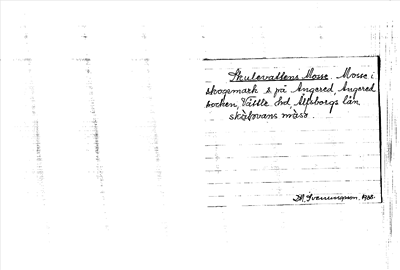 Skulevattens Mosse. Mosse i
skogsmark s på Angered, Angered
socken, Vättle hd, Älfsborgs län
skålovans måsa.
1930.